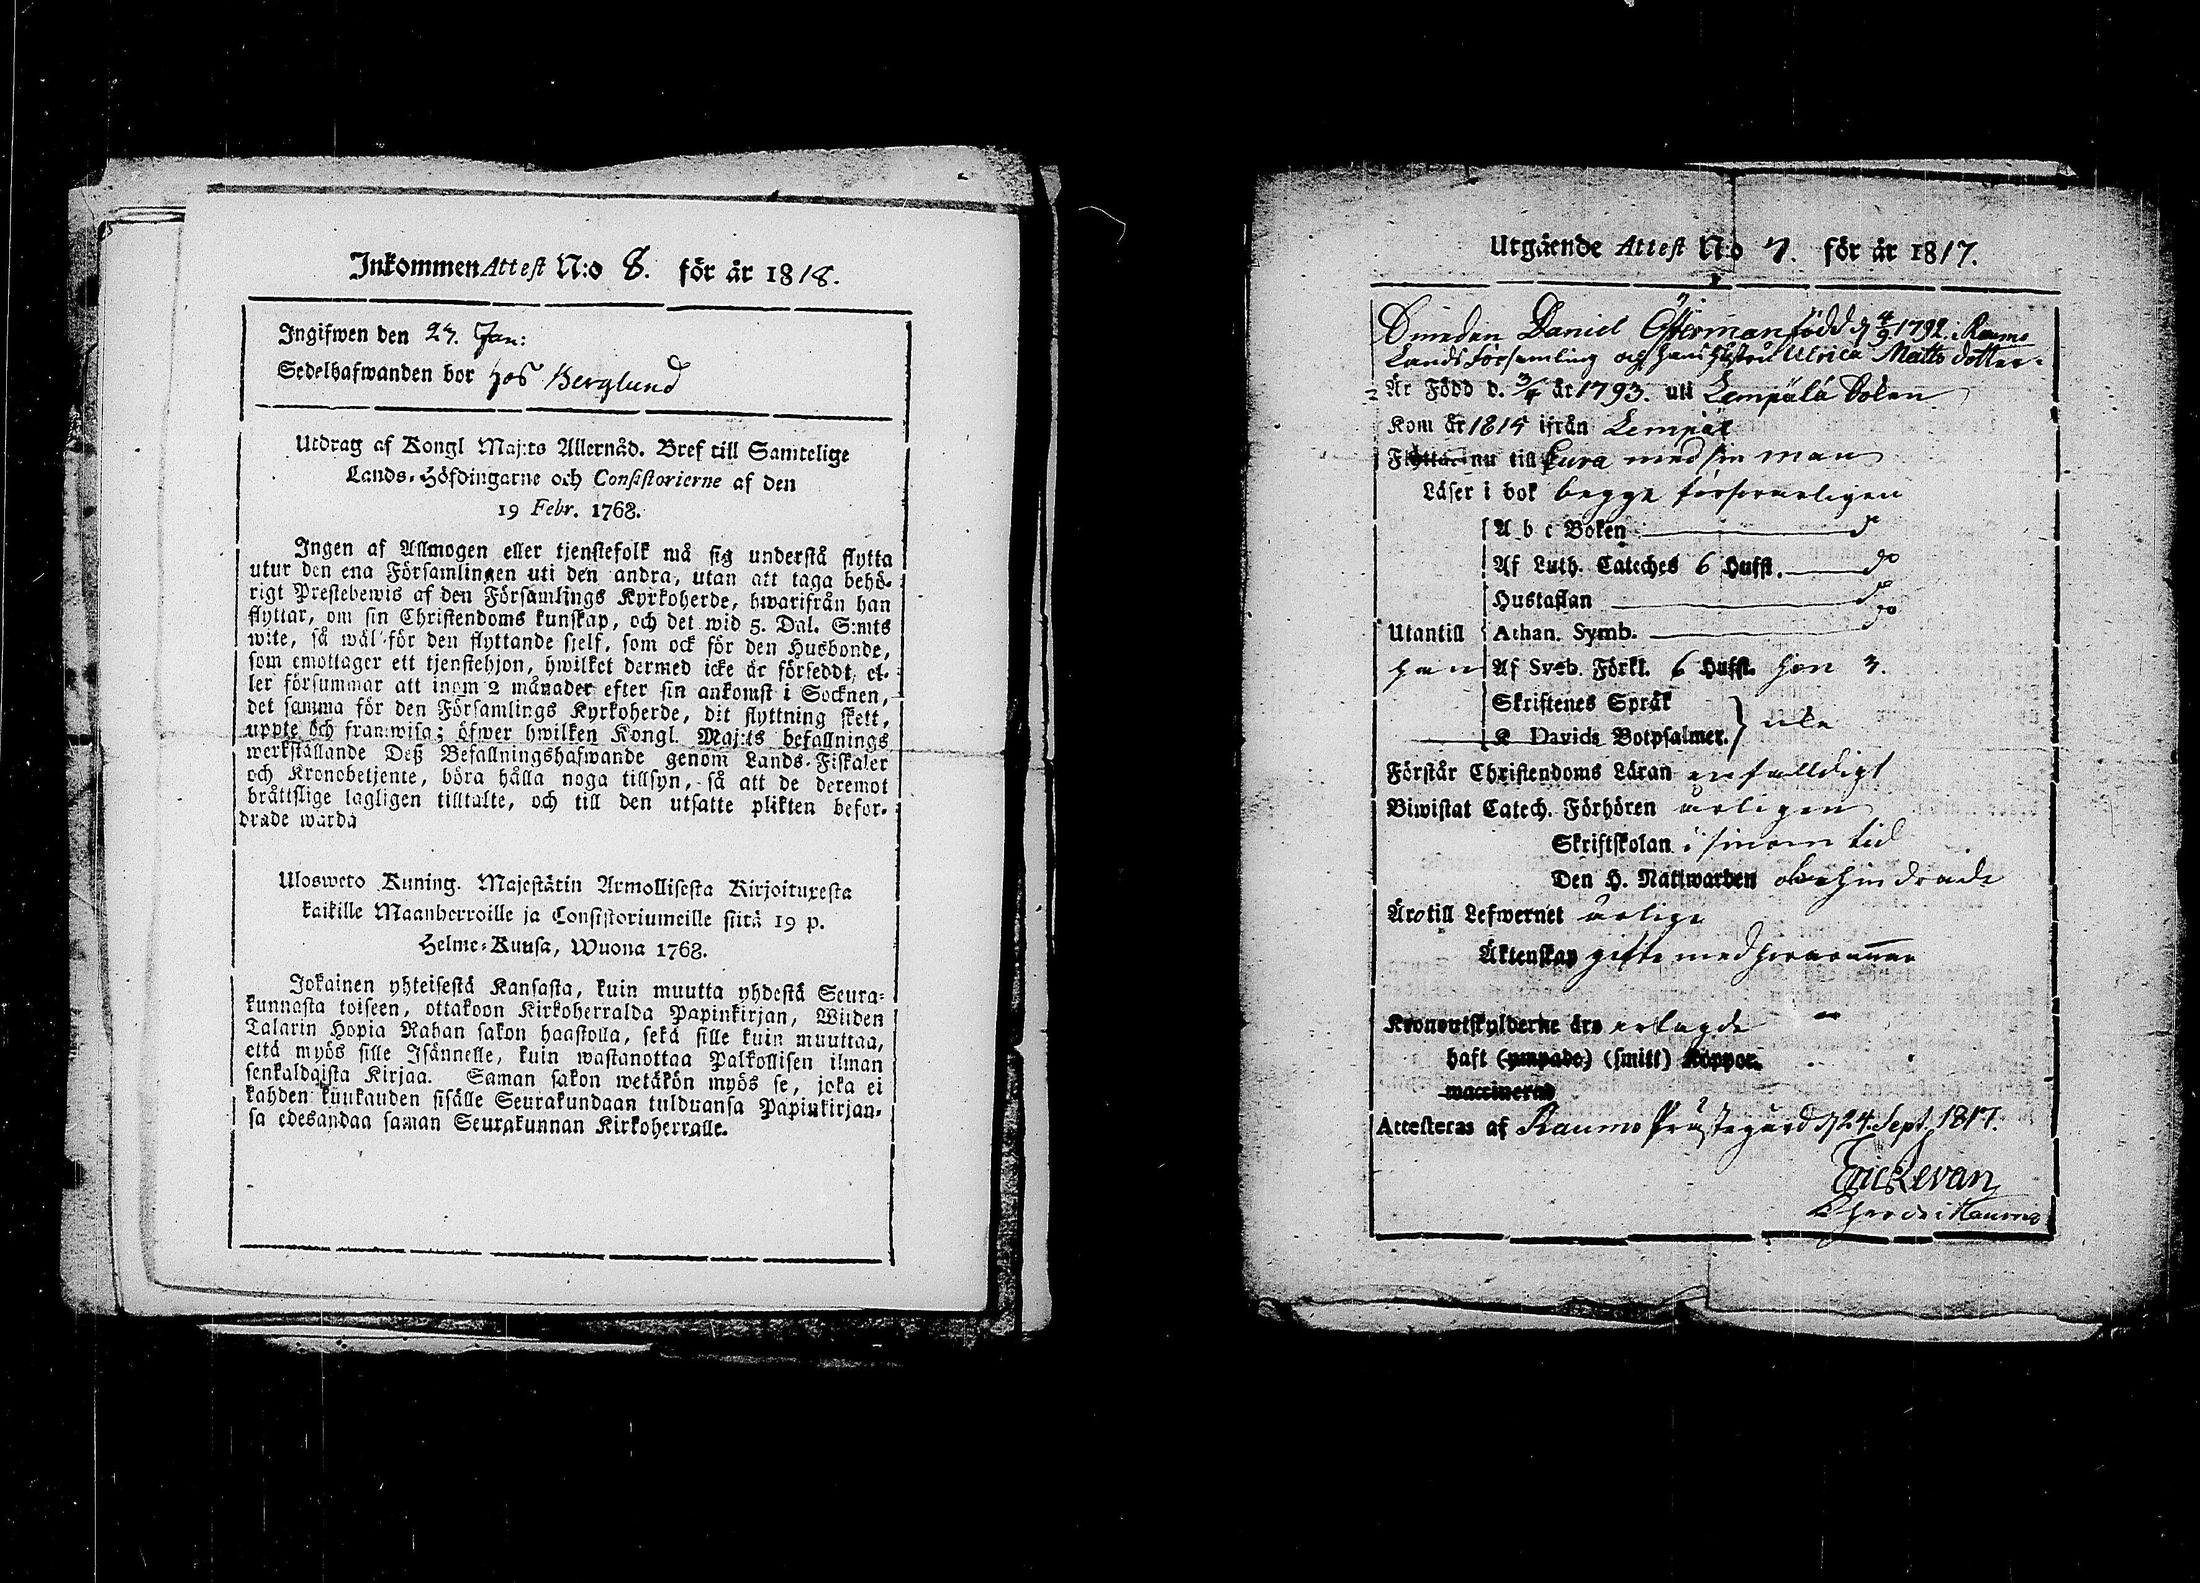 Inkommen Attest N:o 8. för år 1818.
Ingifwen den 23. Jan:
Sedelhafwanden bor hos Berglund
Utdrag af Kongl Maj:ts Allernåd. Bref till Samtelige
Lands-Höfdingarne och Consistorierne af den
19 Febr. 1768.
Ingen af Allmogen eller tjenstefolk må sig understå flytta
utur den ena Församlingen uti den andra, utan att taga behö-
rigt Prestebewis af den Församlings Kyrkoherde, hwarifrån han
flyttar, om sin Christendoms kunskap, och det wid 5. Dal. S:mts
wite, så wäl för den flyttande sjelf, som ock för den Husbonde,
som emottager ett tjenstehjon, hwilket dermed icke är försedt, el-
ler försummar att inom 2 månader efter sin ankomst i Socknen,
det samma för den Församlings Kyrkoherde, dit flyttning skett,
uppte och framwisa; öfwer hwilken Kongl. Maj:ts befallnings
werkställande Deß Befallningshafwande genom Lands-Fiskaler
och Kronobetjente, böra hålla noga tillsyn, så att de deremot
bråttslige lagligen tilltalte, och till den utsatte plikten befor-
drade warda
Ulosweto Kuning. Majestätin Armollisesta Kirjoituxesta
kaikille Maanherroille ja Consistoriumeille siitä 19 p.
Helme-Kuusa, Wuona 1768.
Jokainen yhteisestä Kansasta, kuin muutta yhdestä Seura-
kunnasta toiseen, ottakoon Kirkoherralda Papinkirjan, Wiiden
Talarin Hopia Rahan sakon haastolla, sekä sille kuin muuttaa,
että myös sille Isännelle, kuin wastanottaa Palkollisen ilman
senkaldaista Kirjaa. Saman sakon wetäkön myös se, joka ei
kahden kuukauden sisälle Seurakundaan tulduansa Papinkirjan-
sa edesandaa saman Seurakunnan Kirkoherralle.
Utgående Attest No 7. för år 1817.
Smeden Daniel Österman född d 4/9 1792 i Raumo
Lands församling och hans hustru Ulrica Matts dotter
Är Född d. 3/4 år 1793. uti Lempälä Soken
Kom år 1814 ifrån Lempäl
Flyttar nu till Eura med sin man
Läser i bok begge försvarligen
A b c Boken do
Af Luth. Cateches 6 Hufst. do
Hustaflan do
Utantill Athan. Symb. do
han Af Sveb. Förkl. 6 Hufst. hon 3.
Skriftenes Språk
K Davids Botpsalmer. } icke
Förstår Christendoms Läran enfalldigt
Biwistat Catech. Förhören årligen
Skriftskolan i sinom tid
Den H. Nattwarden obehindrade
Äro till Lefwernet ärlige
Äktenskap gifte med hvarannan
Kronoutskylderne äro erlagde
haft (ympade) (smitt) Koppor.
waccinerad
Attesteras af Raumo Prästegård d 24. Sept. 1817.
Eric Levan
Kherde i Raumo